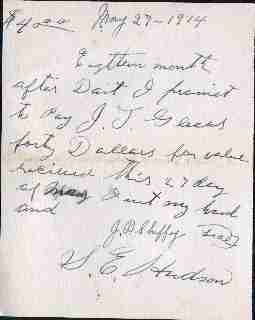 $40.00 May 27-1914
Eighteen month
after Dait I promist
to Pay J. T.
forty Dollars for value
received This 27 day
of May I set my hand
and
J. D. Sheffy Seal
S. E. Hudson